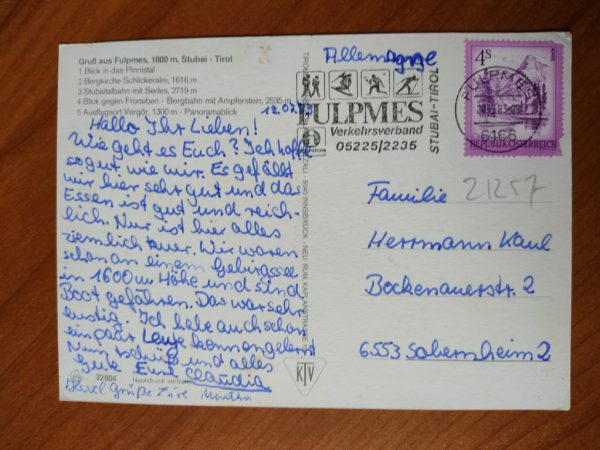 Gruß aus Fulpmes, 1000 m, Stubai - Tirol
1 Blick in das Pinnistal
2 Bergkirche Schlickeralm, 1616 m
3 Stubaitalbahn mit Serles, 2719 m
4 Blick gegen Froneben - Bergbahn mit Ampferstein, 2535 m
5 Ausflugsort Vergör, 1300 m - Panoramablick
12.07.83
Hallo Ihr Lieben!
Wie geht es Euch? Ich hoffe
so gut wie mir. Es gefällt
mir hier sehr gut und das
Essen ist gut und reich-
lich. Nur ist hier alles
ziemlich teuer. Wir waren
schon an einem Gebirgssee
in 1600m Höhe und sind
Boot gefahren. Das war sehr
lustig. Ich habe auch schon
ein paar Leute kennengelernt
Nun tschüß und alles
Gute Eure Claudia
Herzl. Grüße Eure Martha
32604
Nachdruck verboten
KTV
6040 INNSBRUCK - NEU RUM, KAPLANSTRASSE
Allemagne
FULPMES
Verkehrsverband
05225/2235
STUBAI-TIROL
FULPMES
6166
4S
REPUBLIK ÖSTERREICH
21257
Familie
Herrmann Kaul
Bockenauerstr. 2
6553 Sobernheim 2